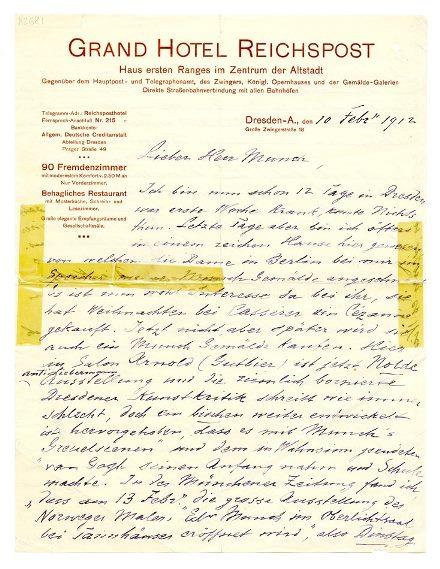 K2681
GRAND HOTEL REICHSPOST
Haus ersten Ranges im Zentrum der Altstadt
Gegenüber dem Hauptpost- und Telegraphenamt, des Zwingers, Königl. Opernhauses und der Gemälde-Galerien
Direkte Straßenbahnverbindung mit allen Bahnhöfen
Telegramm-Adr.: Reichsposthotel
Fernsprech-Anschluß Nr. 215
Bankkonto:
Allgem. Deutsche Creditanstalt
Abteilung Dresden
Prager Straße 49
90 Fremdenzimmer
mit modernstem Komfort v. 2.50 M an
Nur Vorderzimmer.
Behagliches Restaurant
mit Musterküche, Schreib- und
Lesezimmer.
Große elegante Empfangsräume und
Gesellschaftssäle.
Dresden-A., den 10 Febr 1912
Große Zwingerstraße 18
Lieber Herr Munch,
Ich bin nun schon 12 Tage in Dresden
war erste Woche krank, konnte Nichts
thun. Letzte Tage aber bin ich öfters
in einem reichen Hause hier gewesen
von welchen die Dame in Berlin bei mir im
Speicher Munch Gemälde
Es ist nun wohl Interesse da bei ihr, sie
hat Weihnachten bei Cassirer ein Cézanne
gekauft. Jetzt nicht aber später wird sie
auch ein Munch Gemälde kaufen. Hier
im Salon Arnold (Gutbier) ist jetzt Nolde
Ausstellung und die ziemlich bornierte
Dresdener Kunstkritik schreibt wie immer
schlecht, doch ein bischen weiter entwickelt
ist hervorgehoben, dass es mit Munch's
"Greuelscenen" und dem in Wahnsinn geendeten
van Gogh seinen Anfang nahm und Schule
machte. In der Münchener Zeitung fand ich
"dass am 13 Febr. die grosse Ausstellung des
Norweger Maler, Edv Munch im Oberlichtsaal
bei Tannhäuser eröffnet wird", also Dinstag